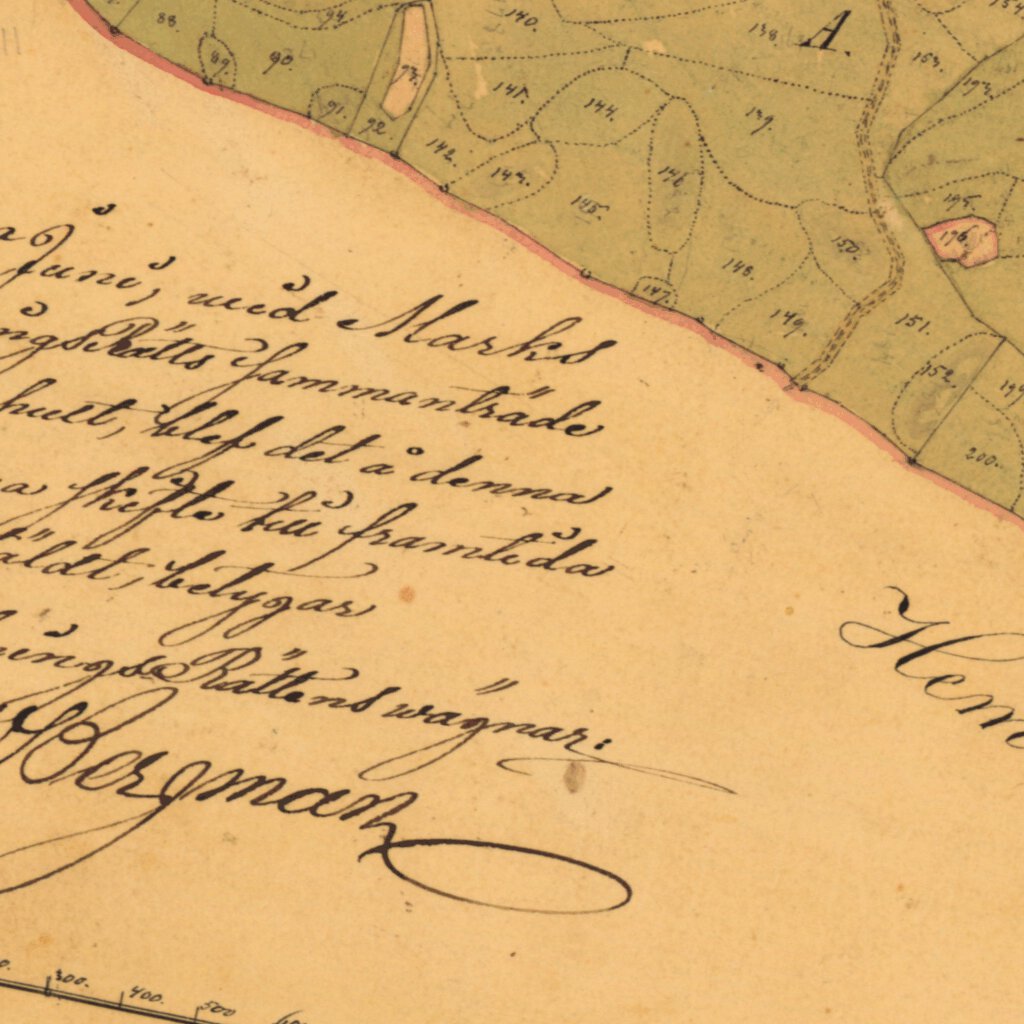 94.
140.
138.
A.
154
88.
89.
90.
93.
153.
193.
141.
144.
139.
91.
92.
142.
143.
146
145.
195.
176.
150.
148.
147.
149.
151.
152.
194
200.
a Juni, wid Marks
ings Rätts Sammanträde
hult, blef det å denna
a skifte till framtida
äldt, betygar
ings Rättens wägnar:
Bergman
Hem
300.
400.
500